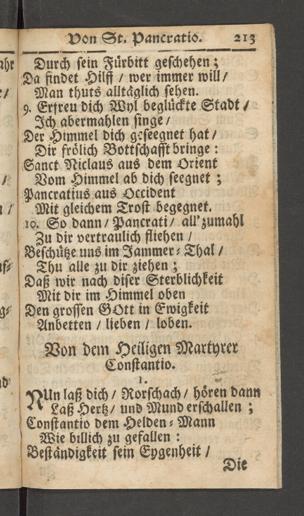 Von St. Pancratio. 213
Durch sein Fürbitt geschehen;
Da findet Hilff / wer immer will /
Man thuts alltäglich sehen.
9. Erfreu dich Wyl beglückte Stadt /
Ich abermahlen singe /
Der Himmel dich geseegnet hat /
Dir frölich Bottschafft bringe:
Sanct Niclaus aus dem Orient
Vom Himmel ab dich seegnet;
Pancratius aus Occident
Mit gleichem Trost begegnet.
10. So dann / Pancrati / all' zumahl
Zu dir vertraulich fliehen /
Beschütze uns im Jammer-Thal /
Thu alle zu dir ziehen;
Daß wir nach diser Sterblichkeit
Mit dir im Himmel oben
Den grossen GOtt in Ewigkeit
Anbetten / lieben / loben.
Von dem Heiligen Martyrer
Constantio.
1.
NUn laß dich / Rorschach / hören dann
Laß Hertz / und Mund erschallen;
Constantio dem Helden-Mann
Wie billich zu gefallen:
Beständigkeit sein Eygenheit /
Die